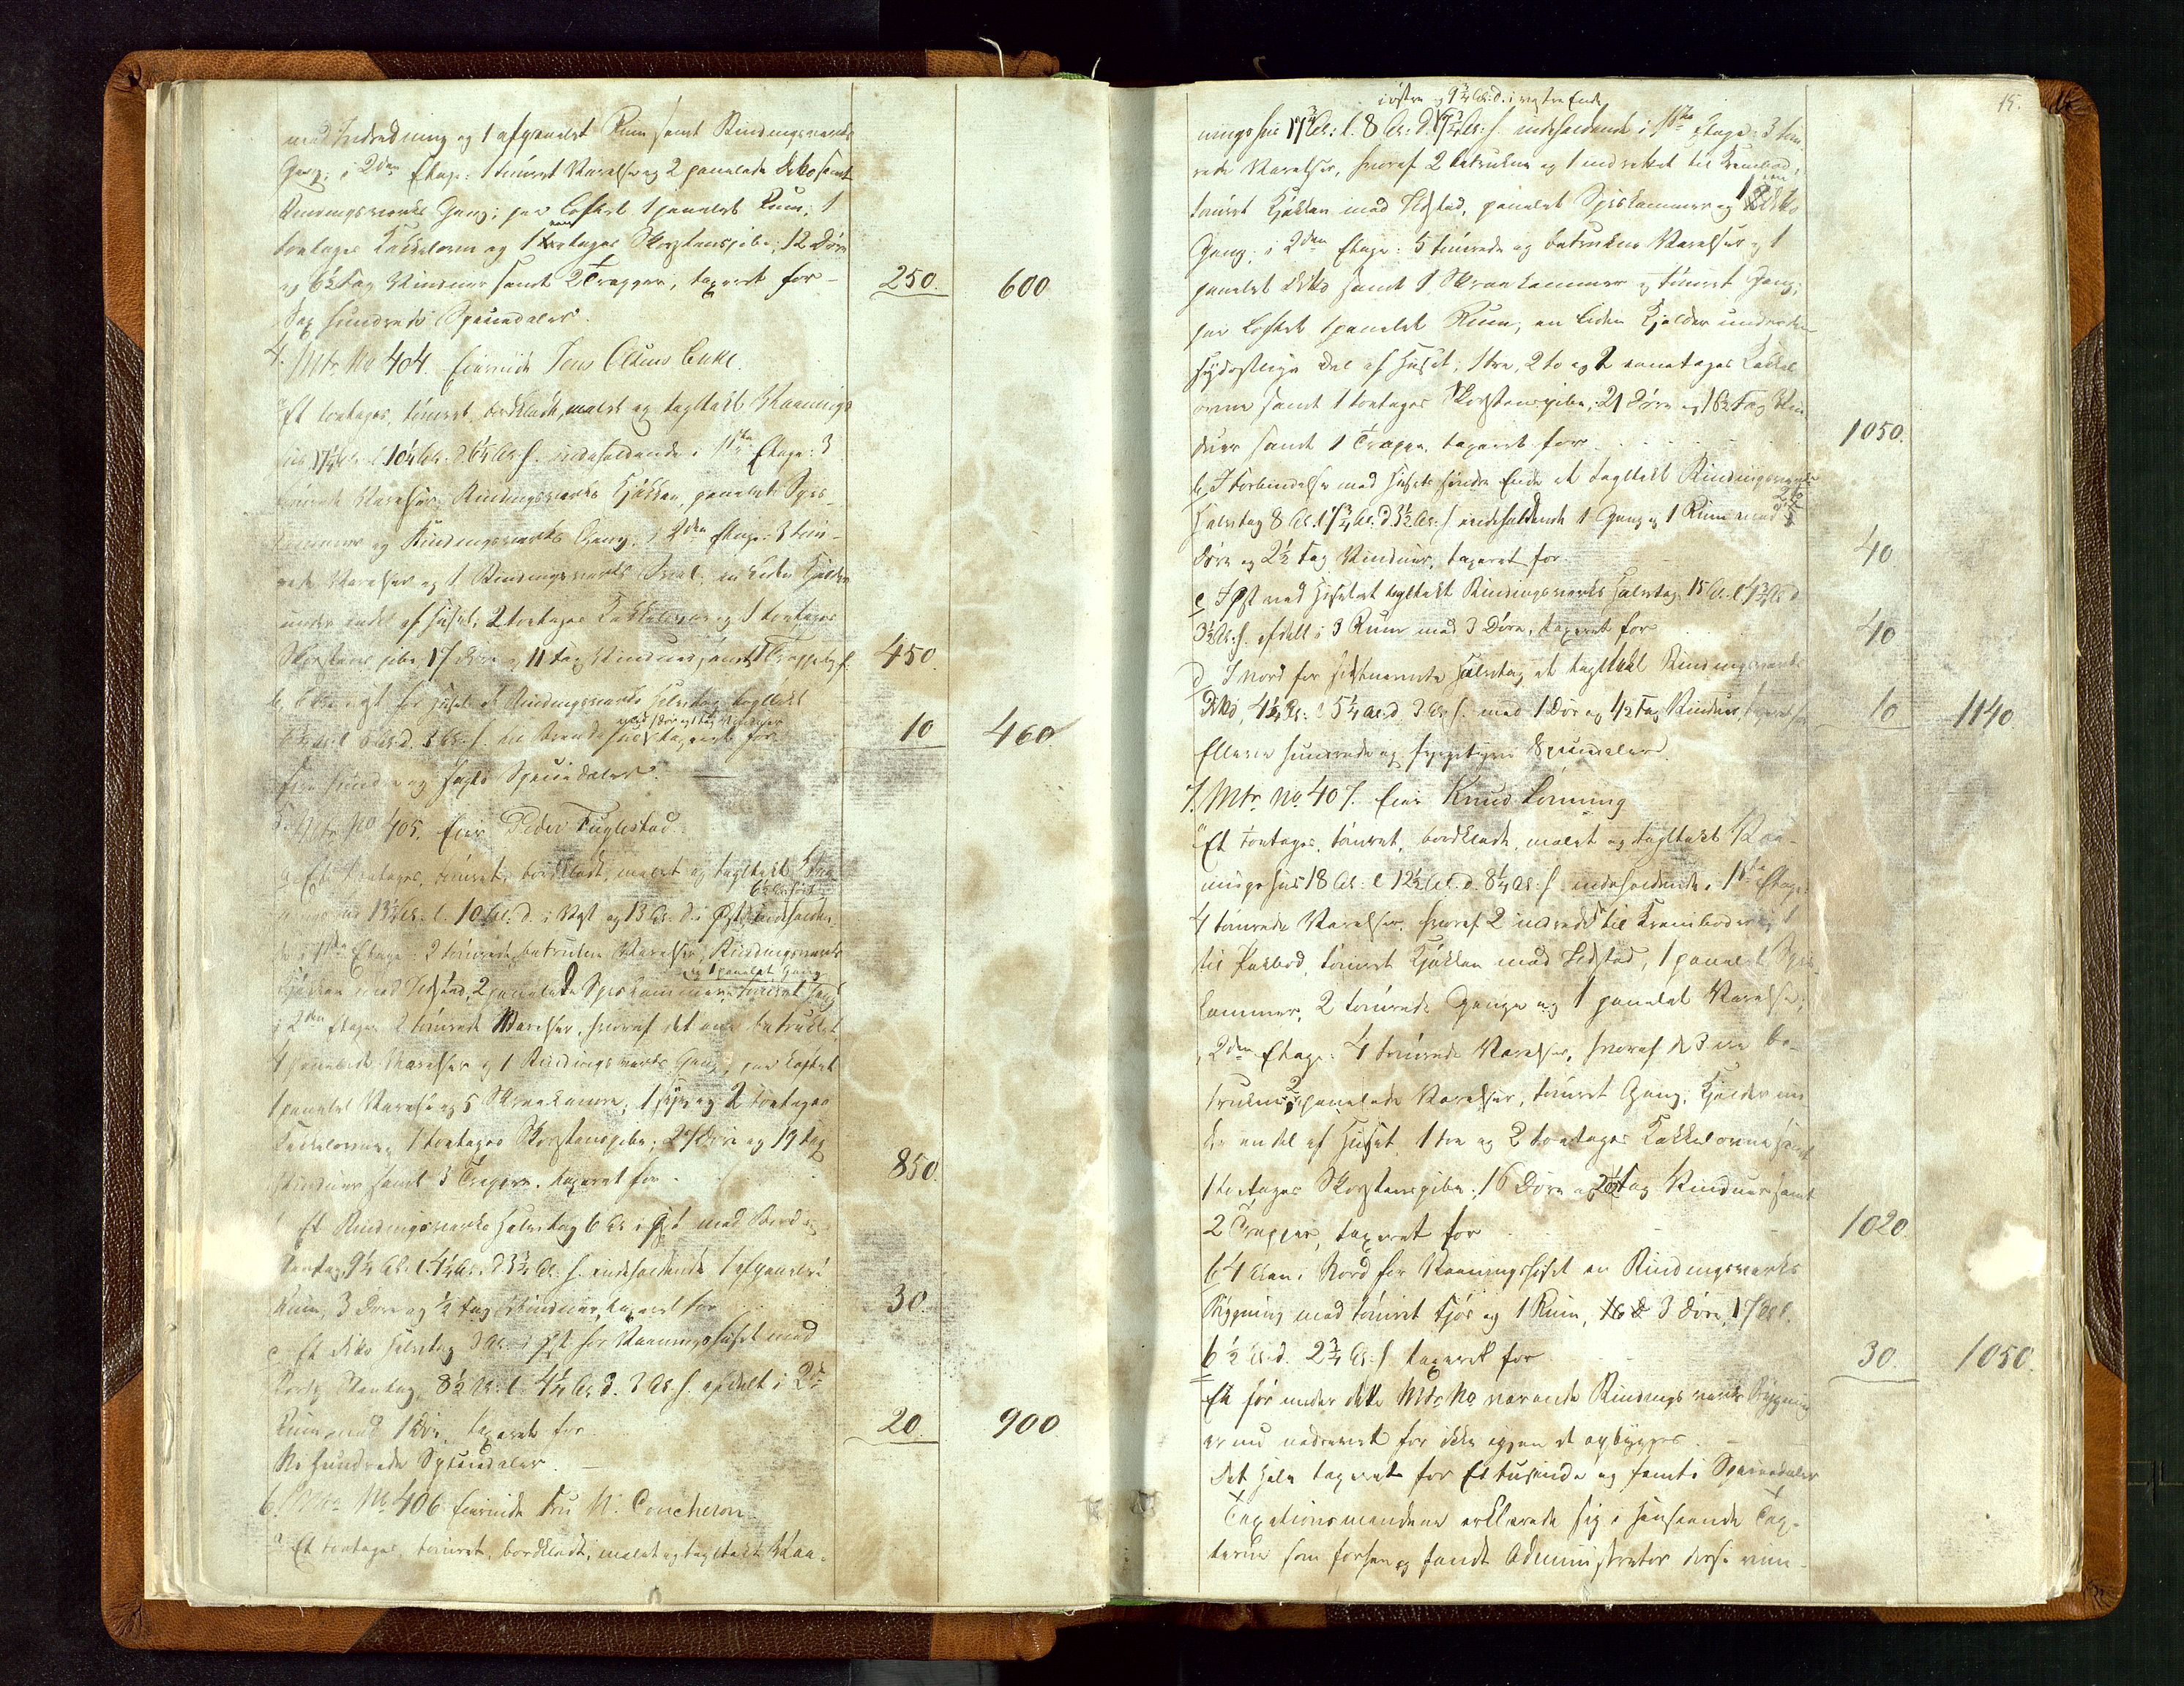 med Indredning og 1 afpanelet Rum samt Bindingsverks
Gang; i 2den Etage: 1 tømret Værelse og 2 panelede ditto samt
Bindingsverks Gang; paa Loftet 1 panelet Rum; 1
toetages Kakkelovn og 1 toetages Skorstenspibe; 12 Døre
og 6½ Fag Vinduer samt 2 Trapper, taxeret for – 250. 600
Sex hundrede Speciedaler.
4. Mtr. No 404. Eierinde Jens Olsens Enke.
a Et toetages, tømret, bordklædt, malet og tagltækt Vaanings
hus 17½ Al. l. 10¼ Al. d. 6¼ Al. h. indeholdende i 1ste Etage: 3
tømrede Værelser, Bindingsverks Kjøkken, panelet Spis-
kammer og Bindingsverks Gang; i 2den Etage: 3 tøm-
rede Værelser og 1 Bindingsverks Sval; en liden Kjelder
under endel af Huset; 2 toetages Kakkelovne og 1 toetages
Skorstenspibe, 17 Døre og 11 Fag Vinduer, samt 1 Trappe tx. f. 450.
b, i Øst for Huset et Bindingsverks Halvtag tagltækt
med 1 Dør og 1 Fag Vinduer
6 Al. d. 3 Al. h. taxeret for 10 460
Fire hundrede og sexti Speciedaler. —
5. Mtr. No 405. Eier Peder Fuglestad.
a Et toetages, tømret, bordklædt, malet og tagltækt Vaa-
ningshus 13½ Al. l. 10 Al. d. i Vest og 13 Al. d. i Øst, indeholden-
de i 1ste Etage: 2 tømrede, betrukne Værelser, Bindingsverks
og 1 panelet Gang
Kjøkken med Ildsted, 2 panelede Spiskammere
i 2den Etage 2 tømrede Værelser, hvoraf det ene betrukket,
4 panelede Værelser og 1 Bindingsverks Gang, paa Loftet
1 panelet Værelse og 5 Skraakamre, 1 og 2 toetages
Kakkelovne, 1 toetages Skorstenspibe; 27 Døre og 19 Fag
Vinduer samt 3 Trapper, taxeret for . 850.
Et Bindingsverks Halvtag 6 Al. i Øst med Bord og
Stentag, 9½ Al. l. 4¼ Al. d. 3¾ Al. h. indeholdende 1 afpanelet
Rum, 3 Døre og ½ Fag Vinduer, taxeret for 30.
c Et ditto Halvtag 3 Al. i Øst for Vaaningshuset med
Bord og Stentag, 8½ Al. l. 4¼ Al. d. 3 Al. h. afdelt i 2de
Rum med 1 Dør, taxeret for 20. 900
Ni hundrede Speciedaler. —
6. Mtr. No 406 Eierinde Fru N. Coucheron.
a Et toetages, tømret, bordklædt, malet og tagltækt Vaa-
15.
i østre og 9¾ Al. d. i vestre Ende
ningshus 17¾ Al: l. 8 Al: d. Al: h. indeholdende i 1ste Etage: 3 tøm-
rede Værelser, hvoraf 2 betrukne og 1 indrettet til Krambod,
tømret Kjøkken med Ildsted, panelet Spiskammer og 1 ditto
Gang; i 2den Etage: 5 tømrede og betrukne Værelser og 1
panelet ditto samt 1 Skraakammer og tømret Gang;
paa Loftet 1 panelet Rum, en liden Kjelder under den
sydøstlige Del af Huset; 1 tre, 2 to og 2 eenetages Kakkel-
ovne samt 1 toetages Skorstenspibe; 21 Døre og 16½ Fag Vin-
duer samt 1 Trappe, taxeret for . . . 1050.
b, I Forbindelse med Husets søndre Ende et tagltækt Bindingsverks
Halvtag 8 Al. l. 7¾ Al. d. 3½ Al. h. indeholdende 1 Gang og 1 Rum med 2
Døre og 2½ Fag Vinduer, taxeret for 40
c I Øst ved Huset et tagltækt Bindingsverks Halvtag 15 Al. l. 7¾ Al. d
3½ Al. h. afdelt i 3 Rum med 3 Døre, taxeret for 40
d I Nord for sidstnævnte Halvtag et tagltækt Bindingsverks
ditto, 4½ Al: l 5¼ Al. d. 3 Al. h. med 1 Dør og ½ Fag Vinduer, taxeret for 10 1140.
Elleve hundrede og fyrgetyve Speciedaler.
7. Mtr. No. 407. Eier Knud Lønning
a Et toetages, tømret, bordklædt, malet og tagltækt Vaa-
ningshus 18 Al. l 12½ Al. d. 8¼ Al. h. indeholdende i 1ste Etage:
4 tømrede Værelser, hvoraf 2 indrede til Kramboder og 1
til Pakbod, tømret Kjøkken med Ildsted, 1 panelet Spis-
kammer, 2 tømrede Gange og 1 panelet Værelse;
i 2den Etage: 4 tømrede Værelser, hvoraf de 3 ere be-
trukne, 2 panelede Værelser, tømret Gang; Kjelder un-
der en del af Huset. 1 tre og 2 toetages Kakkelovne samt
1 toetages Skorstenspibe; 16 Døre og Fag Vinduer samt
2 Trapper, taxeret for 1020.
b 4 Alen i Nord for Vaaningshuset en Bindingsverks
Bygning med tømret Fjøs og 1 Rum, 3 Døre, 17 Al l.
6½ Al. d. 2¾ Al. h taxeret for 30. 1050.
En før under dette Mtr. No værende Bindingsverks Bygning
er nu nedrevet for ikke igjen at opbygges.
Det Hele taxeret for Et tusinde og femti Speciedaler
Taxationsmændene erklærede sig i Henseende Tax-
terne som forhen og fandt Administrator disse rime-